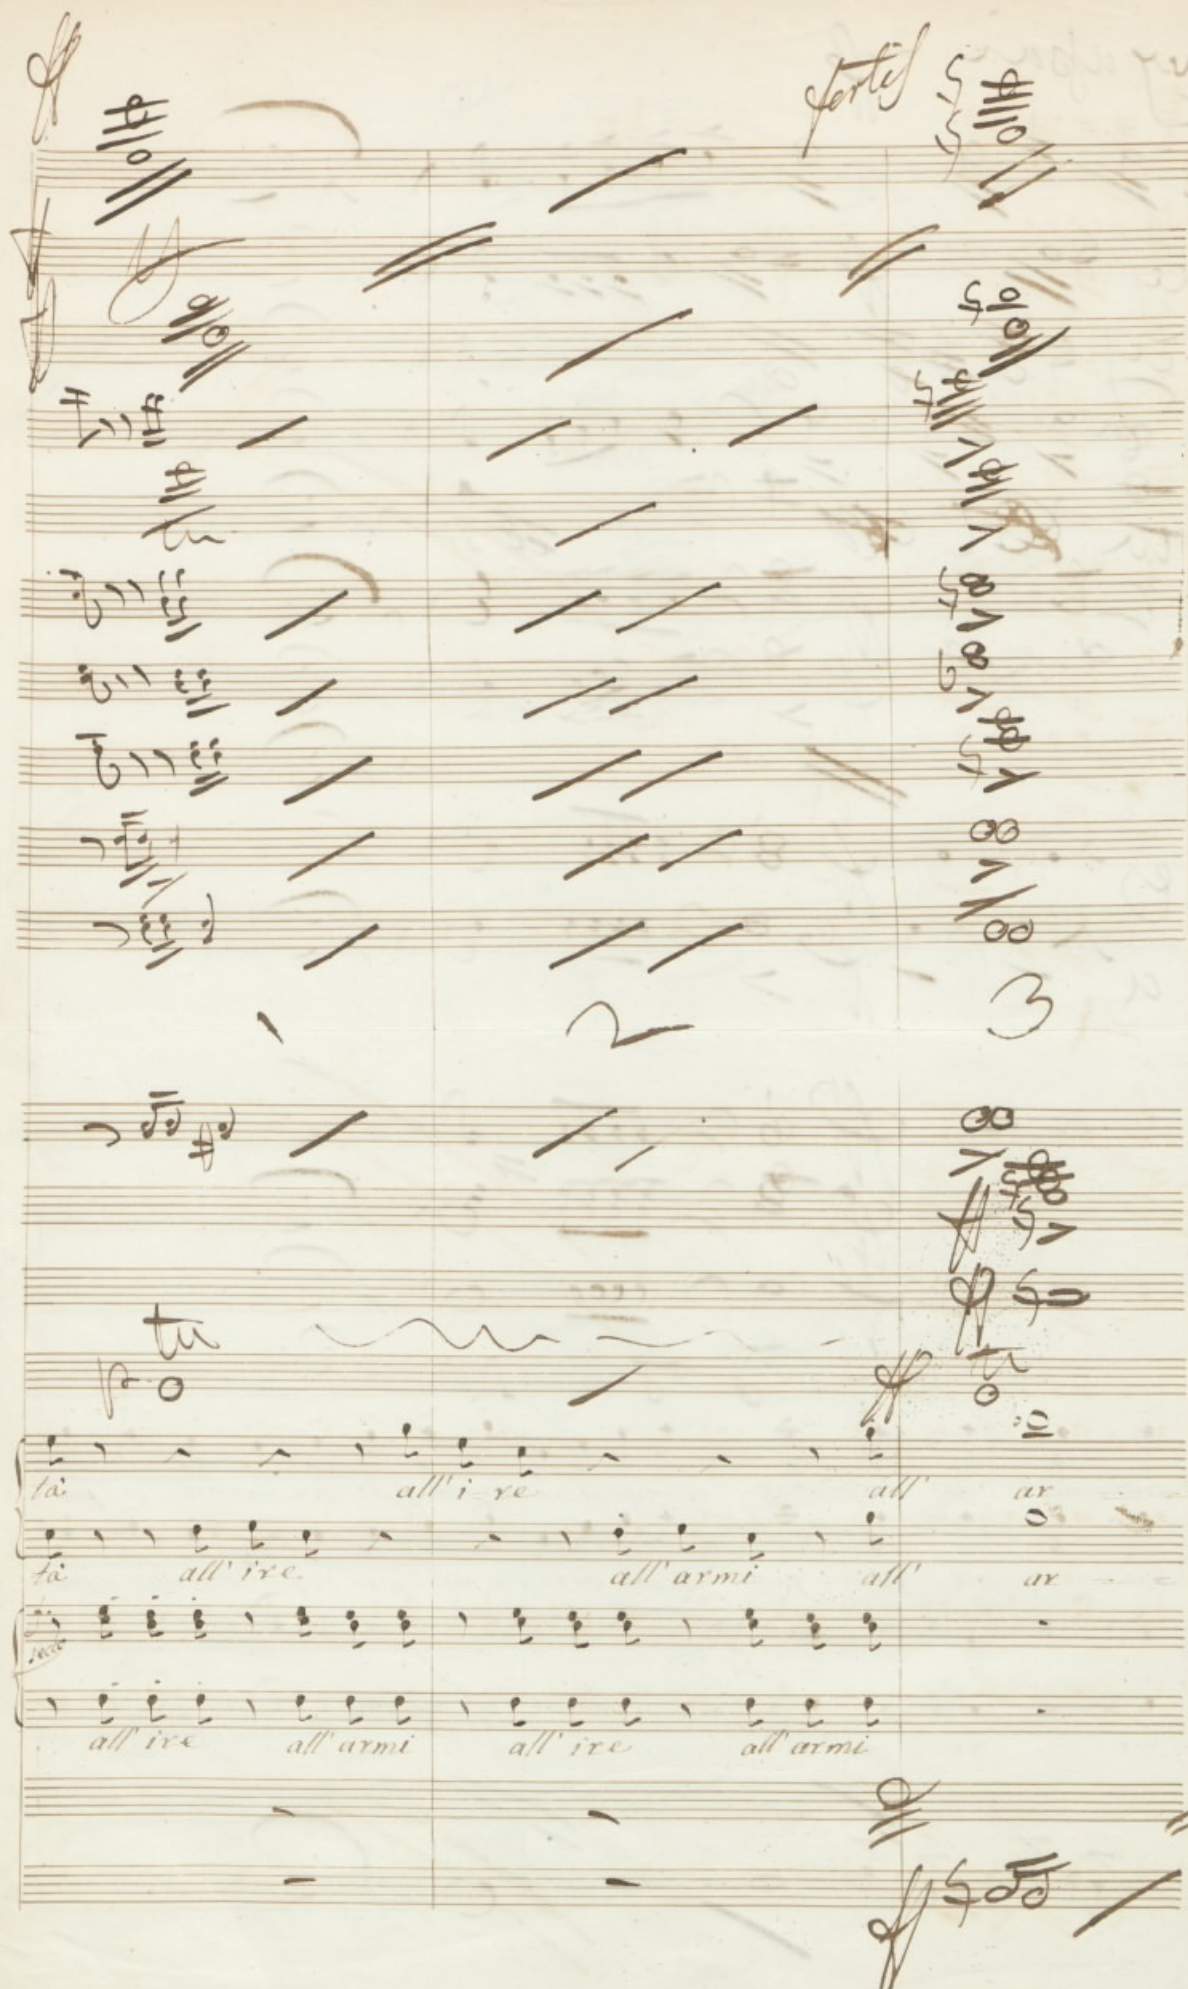 ff
fortis
tr
2 3
ff
ff
tr
p ff tr
tà all' i-re all' ar
tà all' ire all' armi all' ar
secco
all' ire all' armi all' ire all' armi
ff